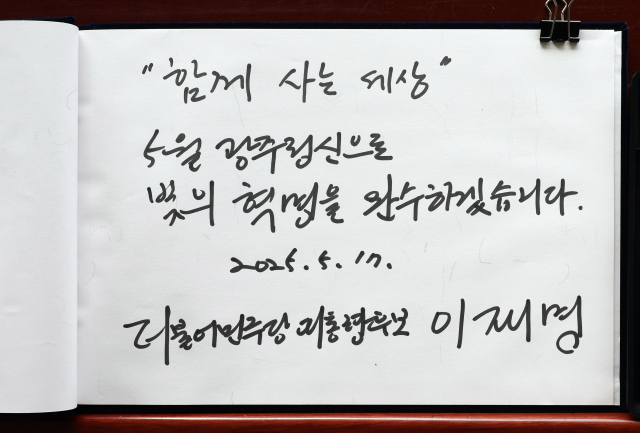 "함께 사는 세상"
5월 광주정신으로
빛의 혁명을 완수하겠습니다.
2025. 5. 17.
더불어민주당 대통령후보 이재명